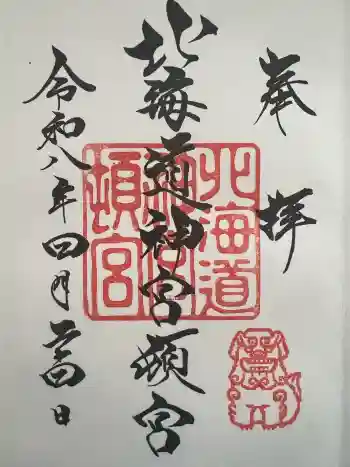 奉拝
北海道神宮頓宮
令和八年四月日
北海道
神宮
頓宮